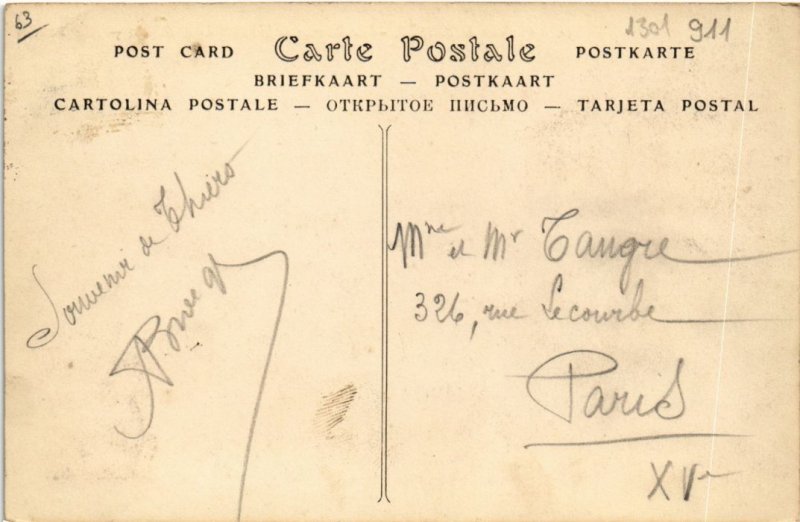 63
1301 911
POST CARD Carte Postale POSTKARTE
BRIEFKAART — POSTKAART
CARTOLINA POSTALE — ОТКРЫТОЕ ПИСЬМО — TARJETA POSTAL
Souvenir de Thiers
Mme et Mr Tangre
326, rue Lecourbe
Paris
XVe